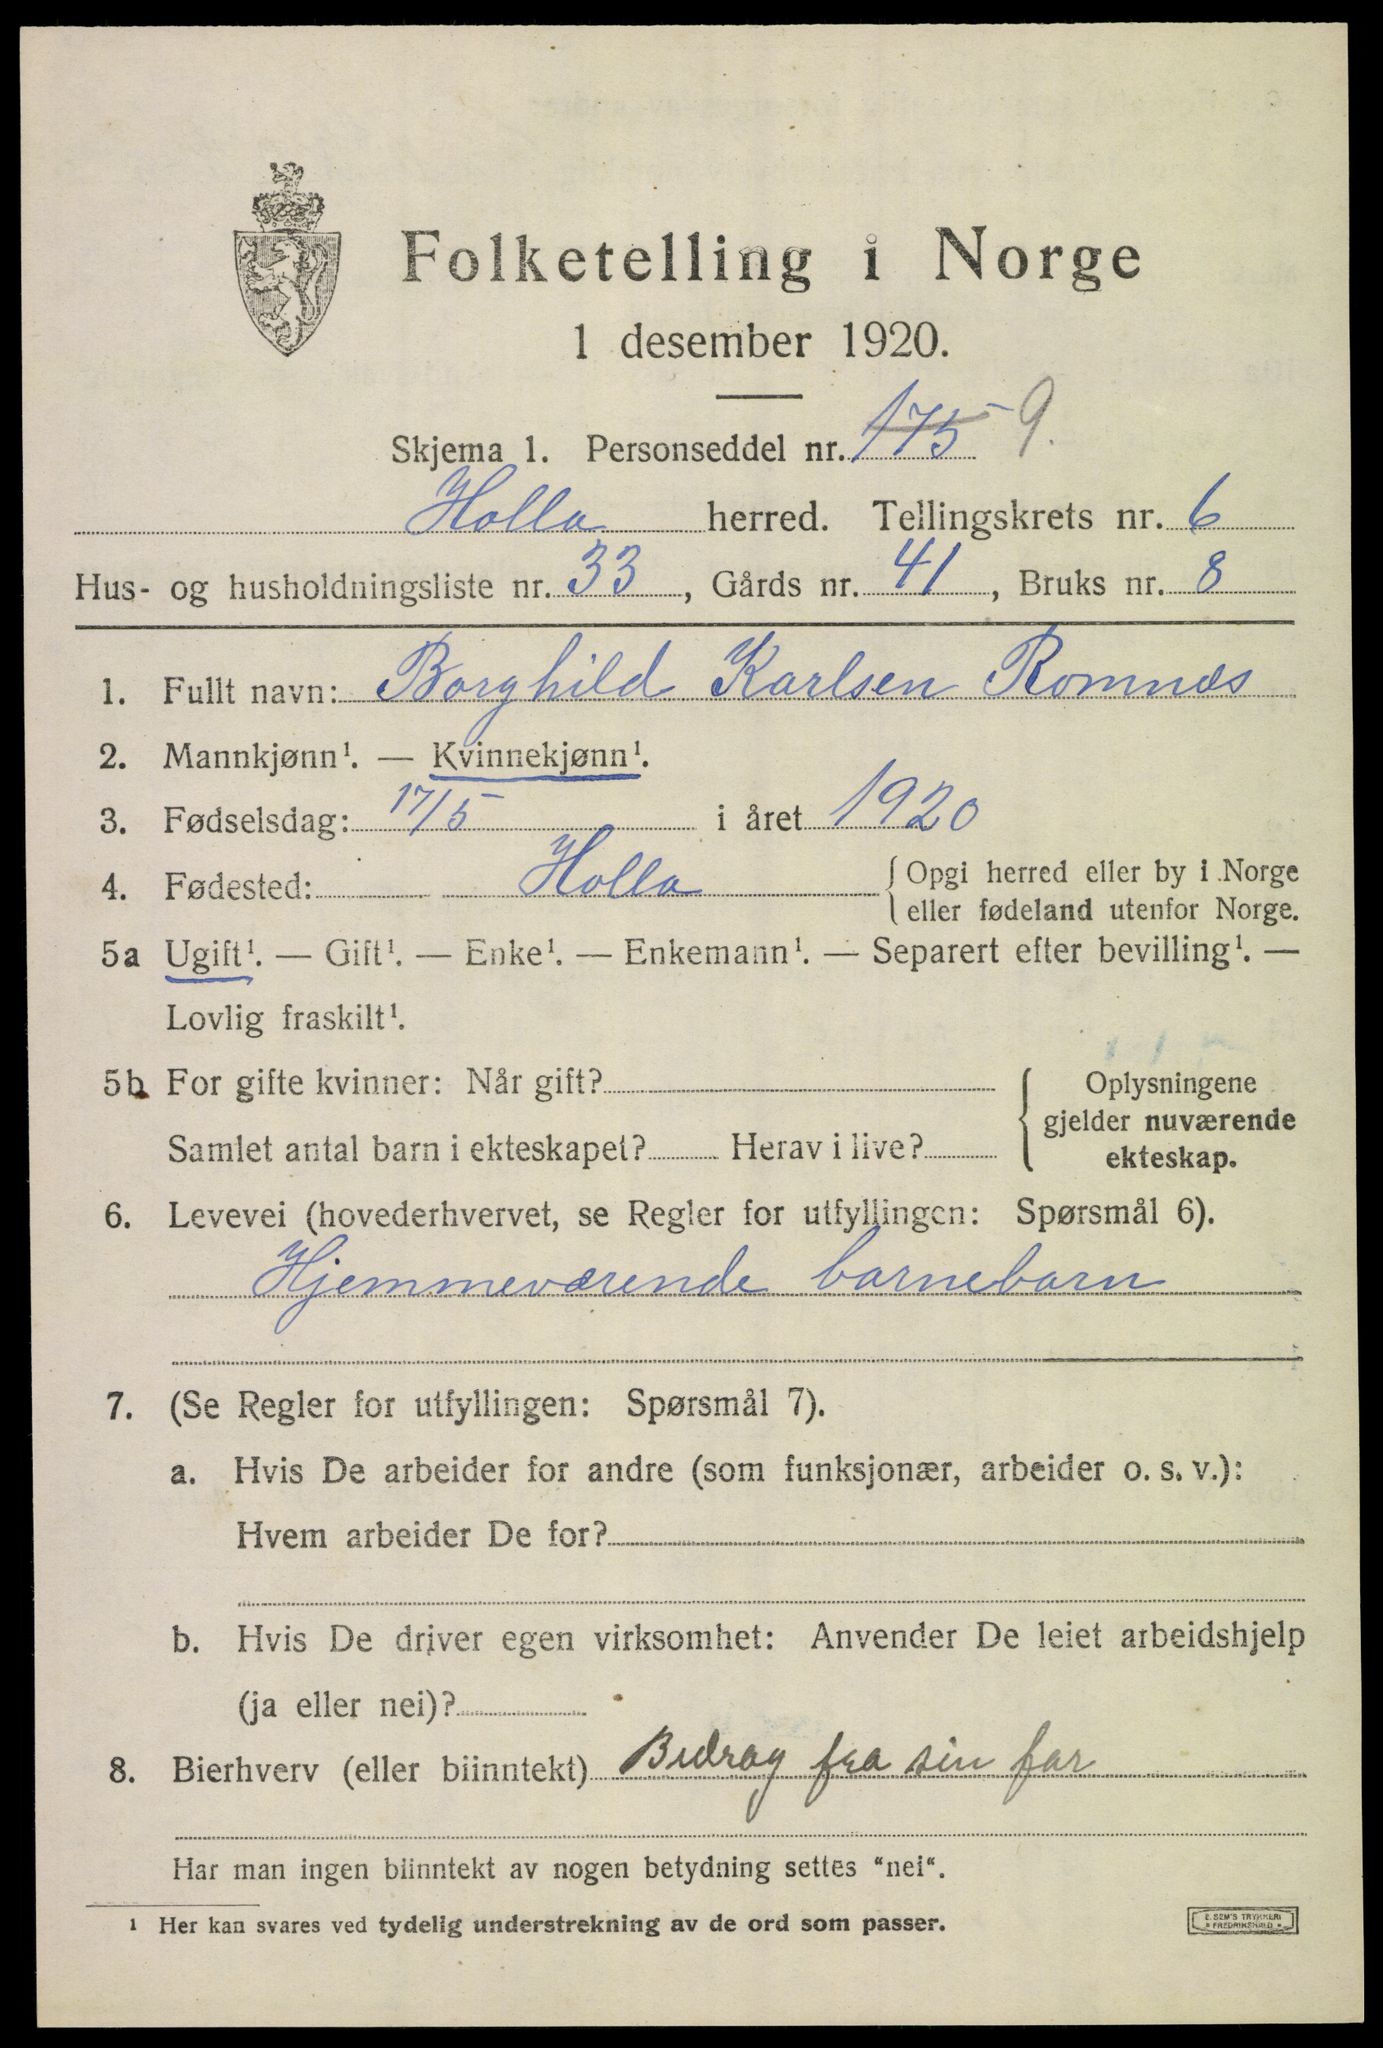 Folketelling i Norge
1 desember 1920.
Skjema 1. Personseddel nr. 175 9.
Holla herred. Tellingskrets nr. 6
Hus- og husholdningsliste nr. 33, Gårds nr. 41, Bruks nr. 8
1. Fullt navn: Borghild Karlsen Romnæs
2. Mannkjønn¹. — Kvinnekjønn¹.
3. Fødselsdag: 17/5 i året 1920
4. Fødested: Holla { Opgi herred eller by i Norge
eller fødeland utenfor Norge.
5a Ugift¹. — Gift¹. — Enke¹. — Enkemann¹. — Separert efter bevilling¹. —
Lovlig fraskilt¹.
5b For gifte kvinner: Når gift? Oplysningene
gjelder nuværende
Samlet antal barn i ekteskapet? Herav i live? ekteskap.
6. Levevei (hovederhvervet, se Regler for utfyllingen: Spørsmål 6).
Hjemmeværende barnebarn
7. (Se Regler for utfyllingen: Spørsmål 7).
a. Hvis De arbeider for andre (som funksjonær, arbeider o. s. v.):
Hvem arbeider De for?
b. Hvis De driver egen virksomhet: Anvender De leiet arbeidshjelp
(ja eller nei)?
8. Bierhverv (eller biinntekt) Bidrag fra sin far
Har man ingen biinntekt av nogen betydning settes "nei".
¹ Her kan svares ved tydelig understrekning av de ord som passer.
E. SEM'S TRYKKERI
FREDRIKSHALD